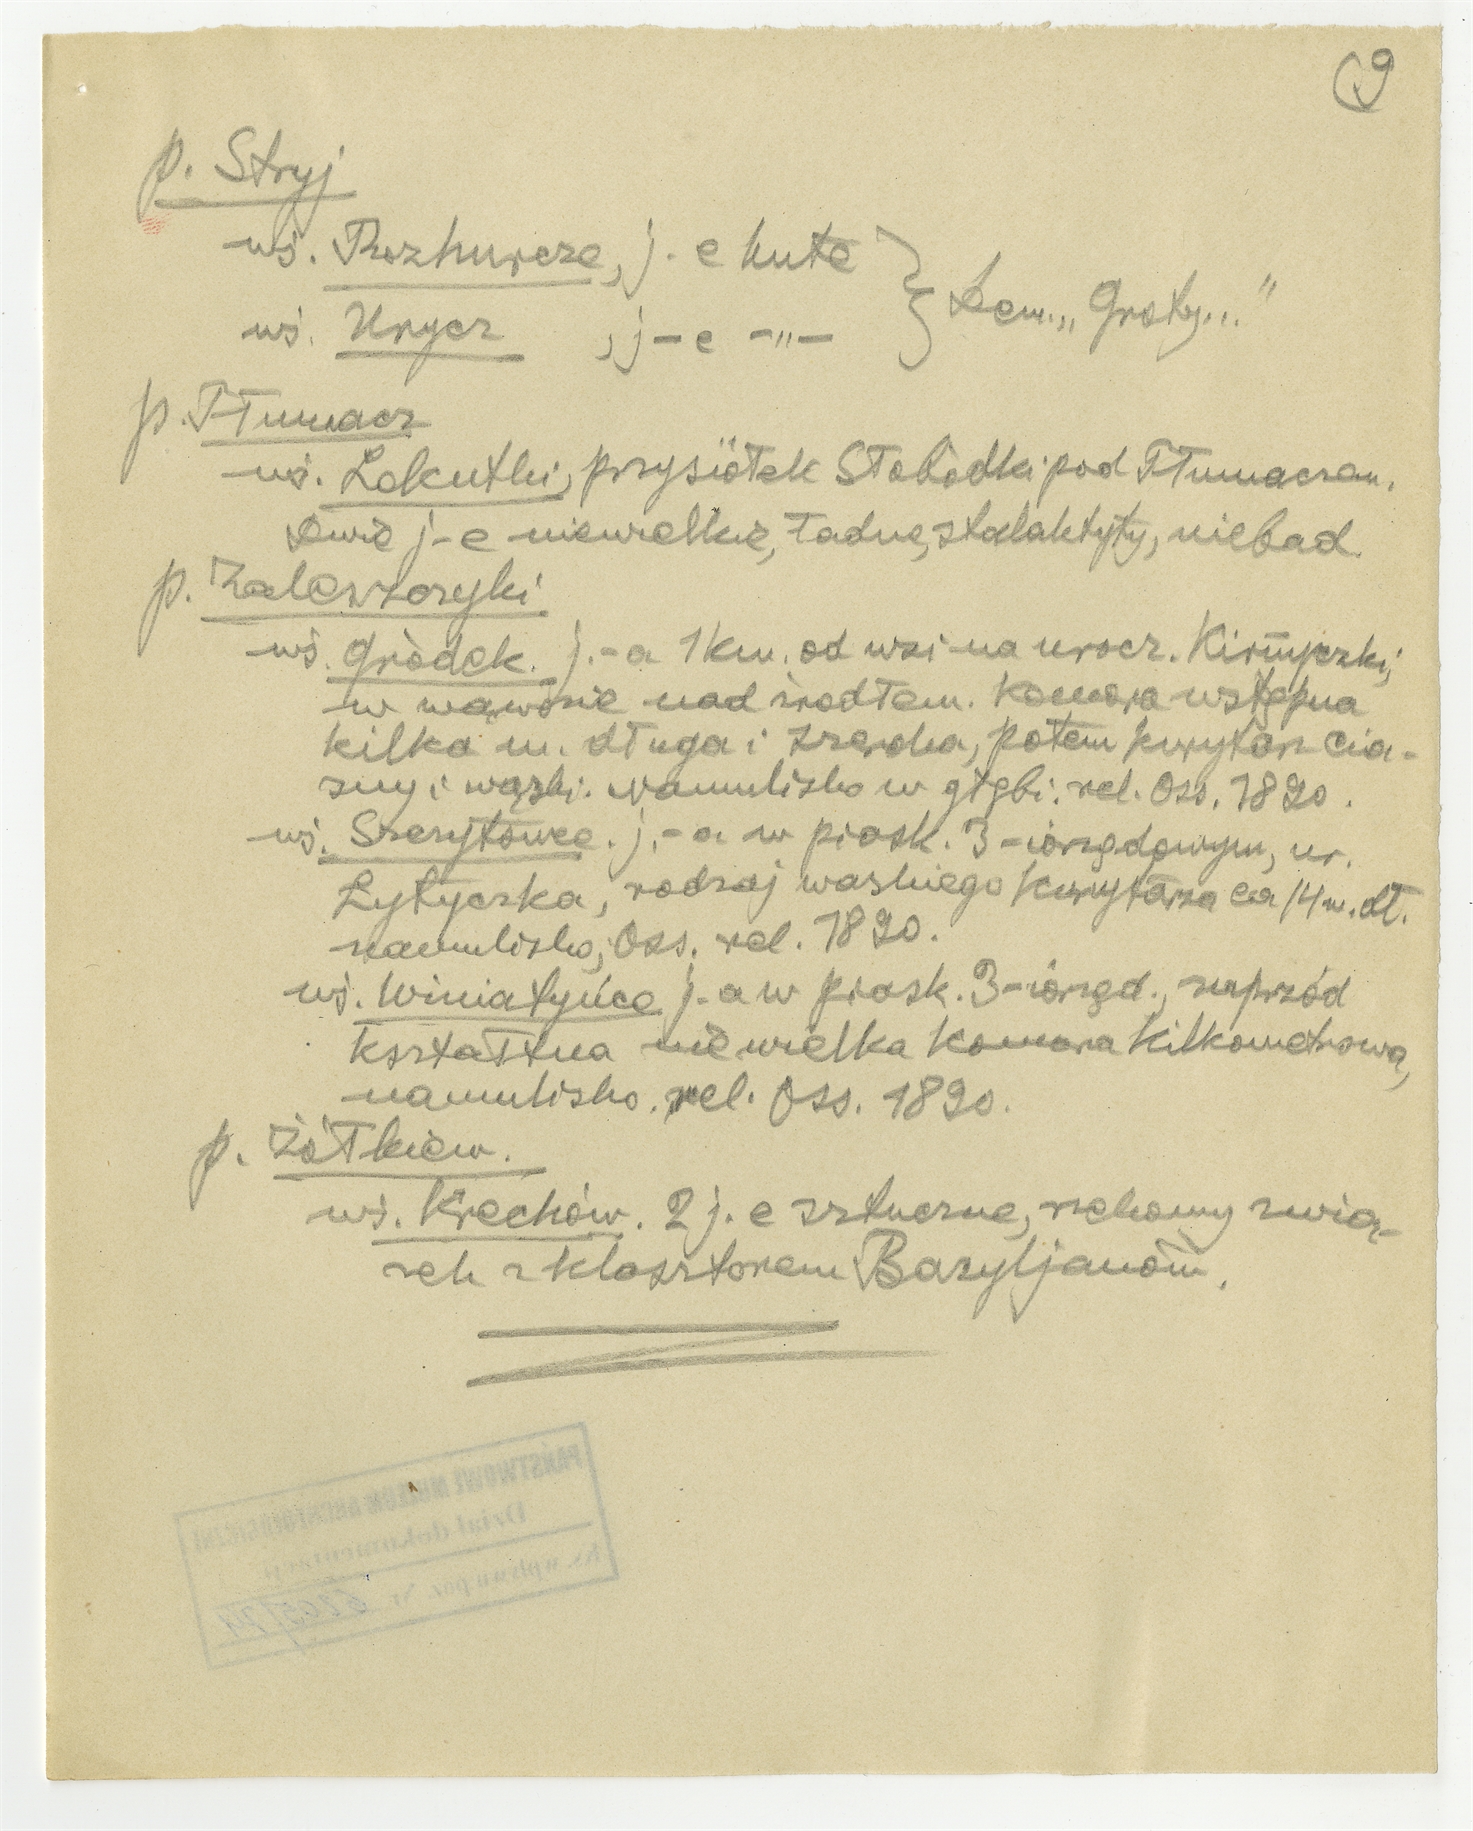 9
p. Stryj
wś. Rozhurcze, j. e kute
wś. Urycz , j-e -"- } Dem. „Groty..."
p. Tłumacz
wś. Lokutki, przysiółek Słobódki pod Tłumaczem.
Dwie j-e niewielkie, ładne, stalaktyty, niebad.
p. Zaleszczyki
wś. Gródek. j.-a 1 km. od wsi na urocz.
w wąwozie nad źródłem. Komora wstępna
kilka m. długa i szeroka, potem kurytarz cia-
sny i wązki. Namulisko w głębi. rel. Oss. 1890.
wś. Szczytowce. j.-a w piask. 3-iorzędowym, ur.
Łytyczka, rodzaj wązkiego kurytarza ca 14 m. dł.
namulisko, Oss. rel. 1890.
wś. Winiatyńce j-a w piask. 3-iorzęd., naprzód
kształtna niewielka komora kilkometrowa,
namulisko. rel. Oss. 1890.
p. Żółkiew.
wś. Krechów. 2 j. e sztuczne, rzekomy zwią-
zek z klasztorem Bazyljanów.
PAŃSTWOWE MUZEUM ARCHEOLOGICZNE
Dział dokumentacji
Ks. wpływu poz. Nr